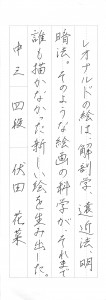 レオナルドの絵は、解剖学、遠近法、明
暗法。そのような絵画の科学が、それまで
誰も描かなかった新しい絵を生み出した。
中三 四段 伏田 花菜